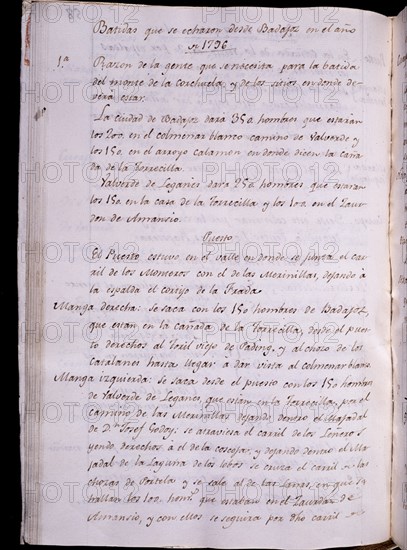 Batidas que se echaron desde Badajoz en el año
de 1796.
1.ª Razon de la gente que se necesita para la batida
del monte de la Corchuela, y de los sitios en donde de-
verá estar.
La ciudad de Badajoz dará 350 hombres que estarán
los 200 en el colmenar blanco camino de Valverde y
los 150 en el arroyo calamon en donde dicen la caña-
da de la Torrecilla.
Valverde de Leganes dará 250 hombres que estarán
los 150 en la casa de la Torrecilla y los 100 en el
don de Amansio.
Puesto
El Puesto estuvo en el valle en donde se junta el car-
ril de los Moneros con el de las Merinillas, dejando à
la espalda el cortijo de la Prada
Manga derecha: se saca con los 150 hombres de Badajoz,
que estan en la cañada de la Torrecilla, desde el pues-
to derechos al viejo de y al chozo de los
Catalanes hasta llegar à dar vista al colmenar blanco
Manga izquierda: se saca desde el puesto con los 150 hombres
de Valverde de Leganes que estan en la Torrecilla, por el
camino de las Merinillas dejando dentro el Majadal
de D.n Josef Godoy: se atraviesa el carril de los
yendo derechos à el de la y dejando dentro el Ma-
jadal de la Laguna de los lobos se cruza el carril de las
chozas de Portela y se sale al de las en que se
hallan los 100 hom.s que estaban en el de
Amansio, y con ellos se seguirá por dho carril
PHOTO12